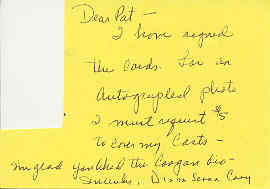 Dear Pat —
I have signed
the cards. For an
Autographed photo
I must request $5
to cover my costs —
I'm glad you liked the Coogan bio —
Sincerely, Diana Serra Cary